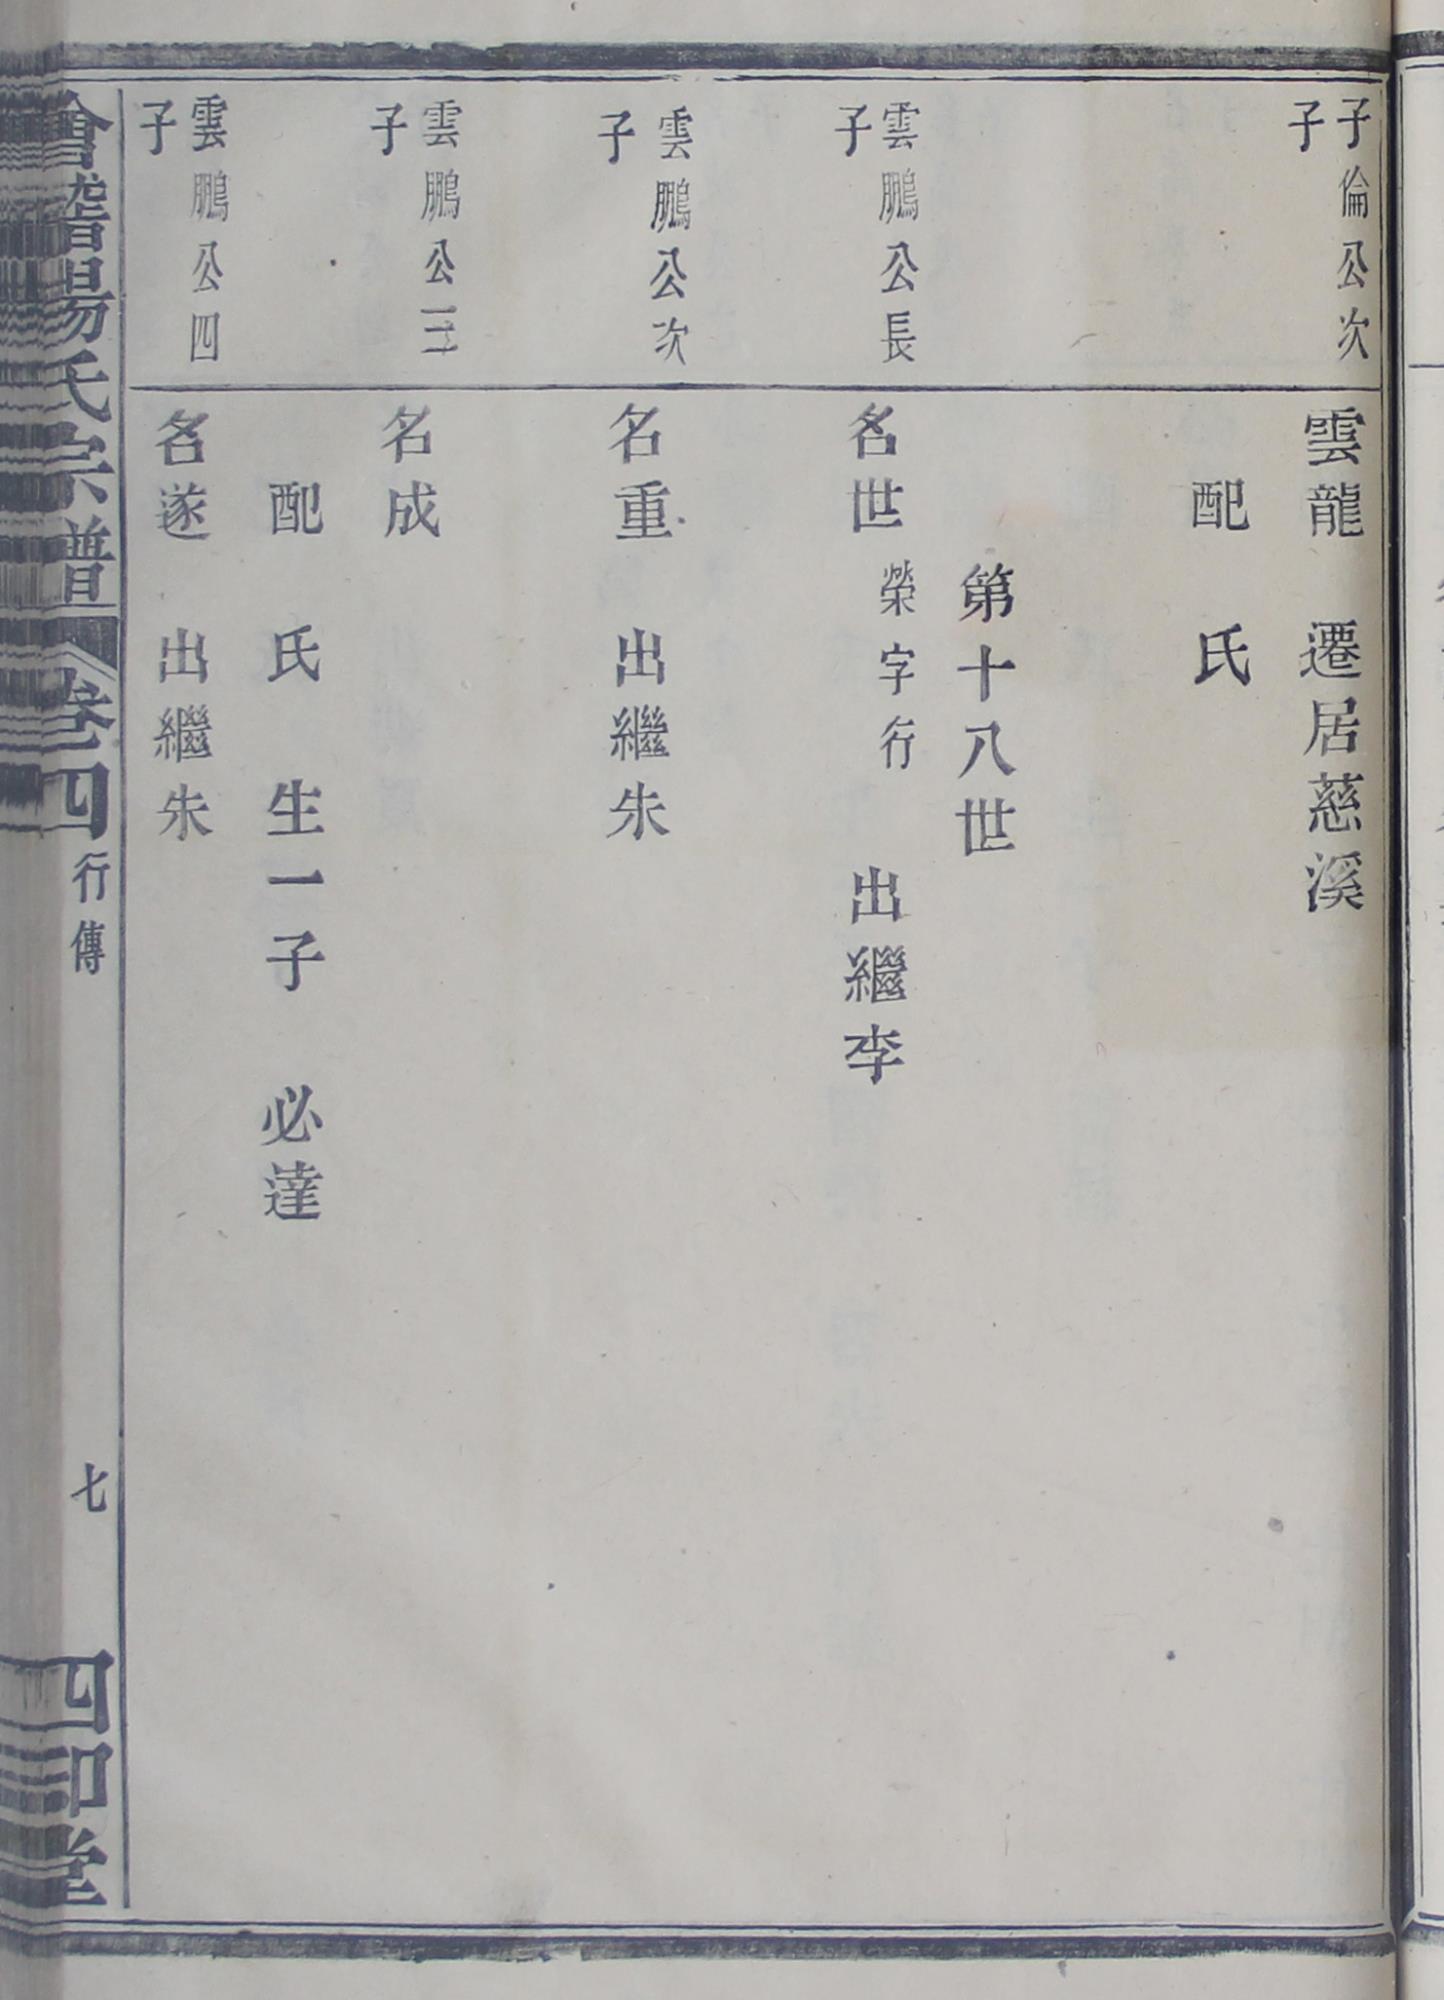 子倫公次
子
雲龍 遷居慈溪
配 氏
第十八世
雲鵬公長
子
名世 榮字行 出繼李
雲鵬公次
子
名重 出繼朱
雲鵬公三
子
名成
配 氏 生一子 必達
雲鵬公四
子
名遂 出繼朱
會稽楊氏宗譜 卷四 行傳 七 四知堂